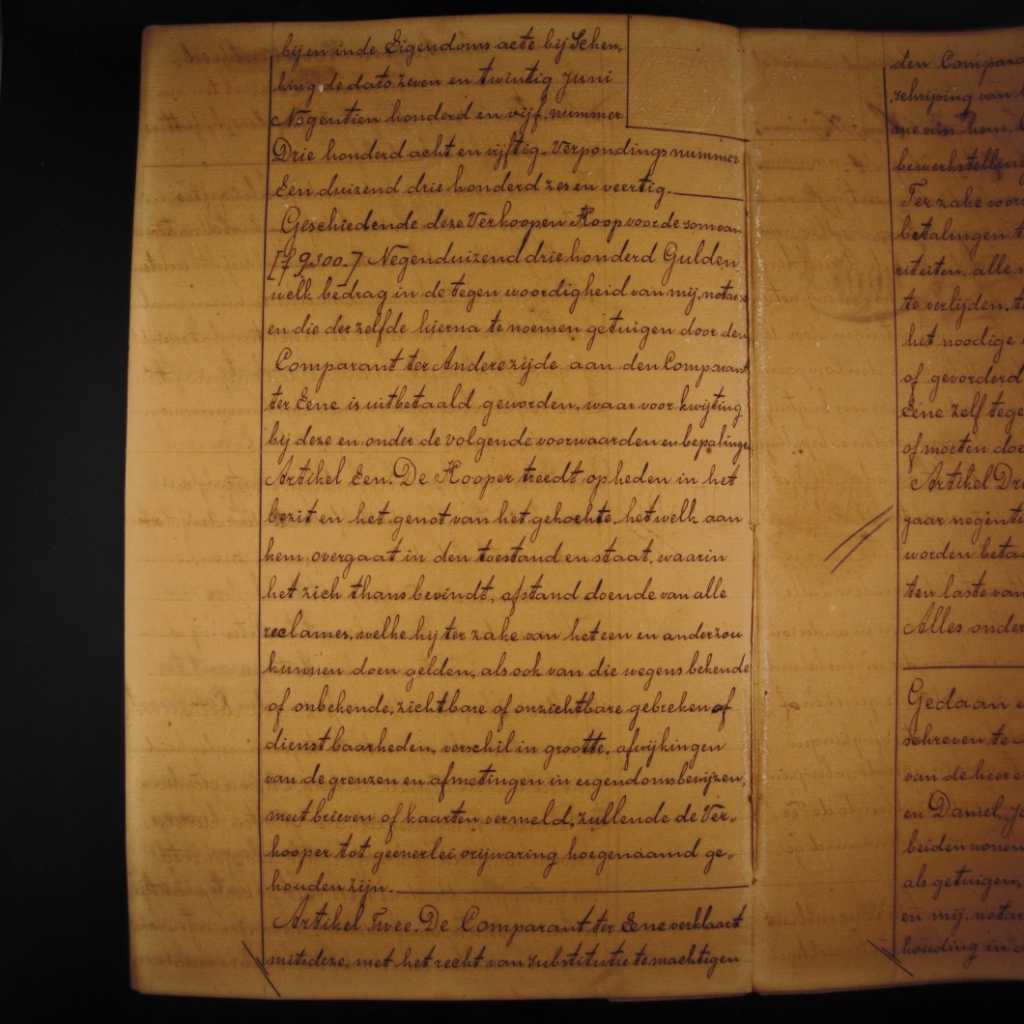 bij en in de Eigendoms acte bij Schen,
king de dato zeven en twintig Juni
Negentien honderd en vijf, nummer
Drie honderd acht en vijftig. Verpondings nummer
Een duizend drie honderd zes en veertig.
Geschiedende deze Verkoop en Koop voor de som van
[f 9300.-] Negenduizend drie honderd Gulden
welk bedrag in de tegenwoordigheid van mij, notaris
en die der zelfde hierna te noemen getuigen door den
Comparant ter Andere zijde aan den Comparant
ter Eene is uitbetaald geworden, waar voor kwijting
bij deze en onder de volgende voorwaarden en bepalingen
Artikel Een. De Kooper treedt op heden in het
bezit en het genot van het gekochte, het welk aan
hem overgaat in den toestand en staat, waarin
het zich thans bevindt, afstand doende van alle
reclames, welke hij ter zake van het een en ander zou
kunnen doen gelden, als ook van die wegens bekende
of onbekende, zichtbare of onzichtbare gebreken of
dienstbaarheden, verschil in grootte, afwijkingen
van de grenzen en afmetingen in eigendomsbewijzen,
meetbrieven of kaarten vermeld, zullende de Ver-
kooper tot geenerlei vrijwaring hoegenaamd ge-
houden zijn.
Artikel Twee. De Comparant ter Eene verklaart
mits deze, met het recht van substitutie te machtigen
den Compara
schrijving van
van hun
bewerkstelling
Ter zake voor
betalingen t
riteiten, alle
te verlijden, t
het noodige
of gevorderd
Eene zelf tege
of moeten doe
Artikel Dri
jaar negenti
worden betaa
ten laste van
Alles onder
Gedaan e
schreven te
van de heer e
en Daniel, J
beiden wonen
als getuigen,
en mij, notar
houding in